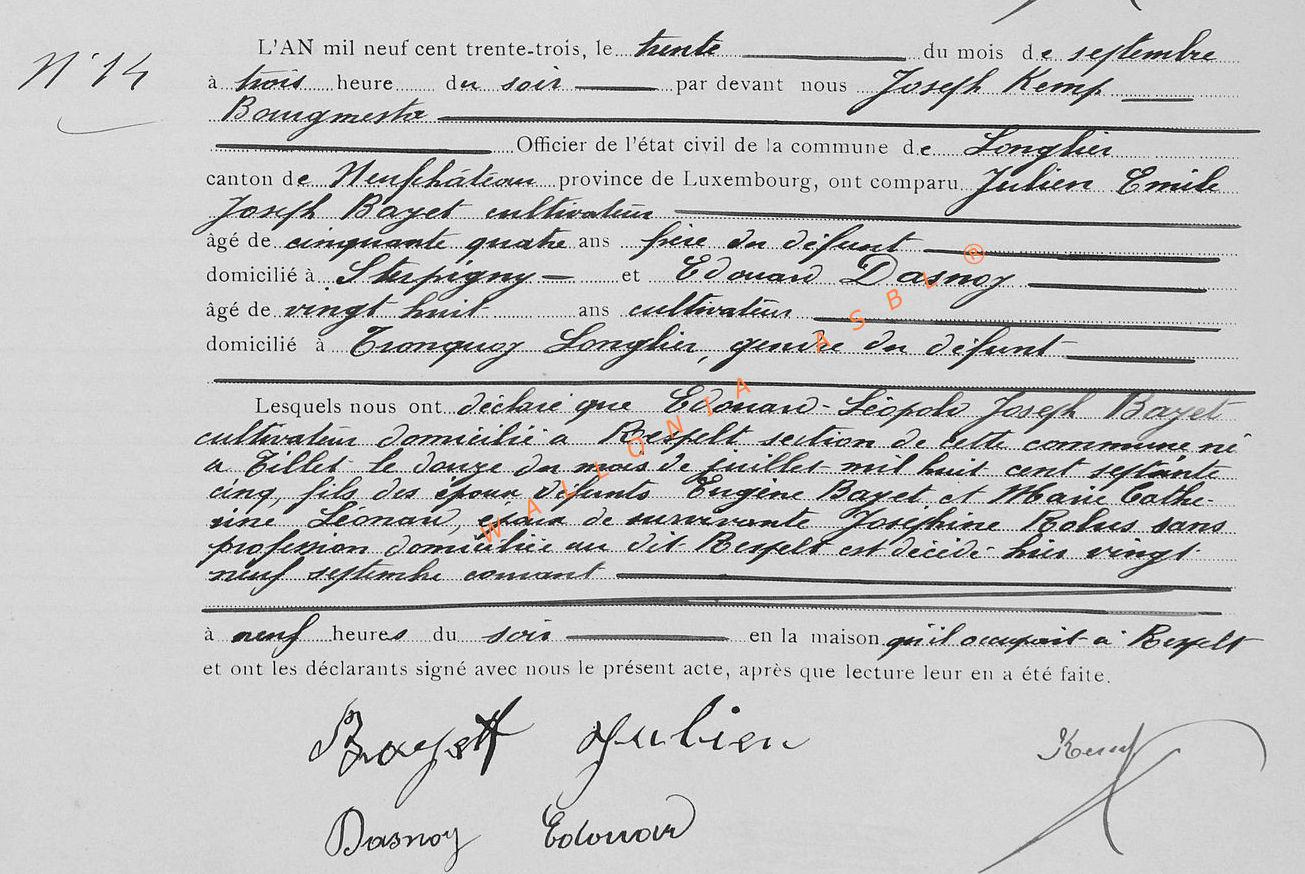 N° 14
L'AN mil neuf cent trente-trois, le trente du mois de septembre
à trois heure du soir par devant nous Joseph Kemp
Bourgmestre
Officier de l'état civil de la commune de Longlier
canton de Neufchâteau province de Luxembourg, ont comparu Julien Emile
Joseph Bayet cultivateur
âgé de cinquante quatre ans frère du défunt
domicilié à Sterpigny et Edouard Dasnoy
âgé de vingt huit ans cultivateur
domicilié à Tronquoy Longlier, gendre du défunt
Lesquels nous ont déclaré que Edouard-Léopold Joseph Bayet
cultivateur domicilié a Respelt section de cette commune né
a Tillet le douze du mois de juillet mil huit cent septante
cinq, fils des époux défunts Eugène Bayet et Marie Cathe-
rine Léonard, époux de survivante Joséphine Rolus sans
profession domiciliée au dit Respelt est décédé hier vingt
neuf septembre courant
à neuf heures du soir en la maison qu'il occupait à Respelt
et ont les déclarants signé avec nous le présent acte, après que lecture leur en a été faite.
Bayet Julien
Kemp
Dasnoy Edouard
WALLONIA ASBL ®